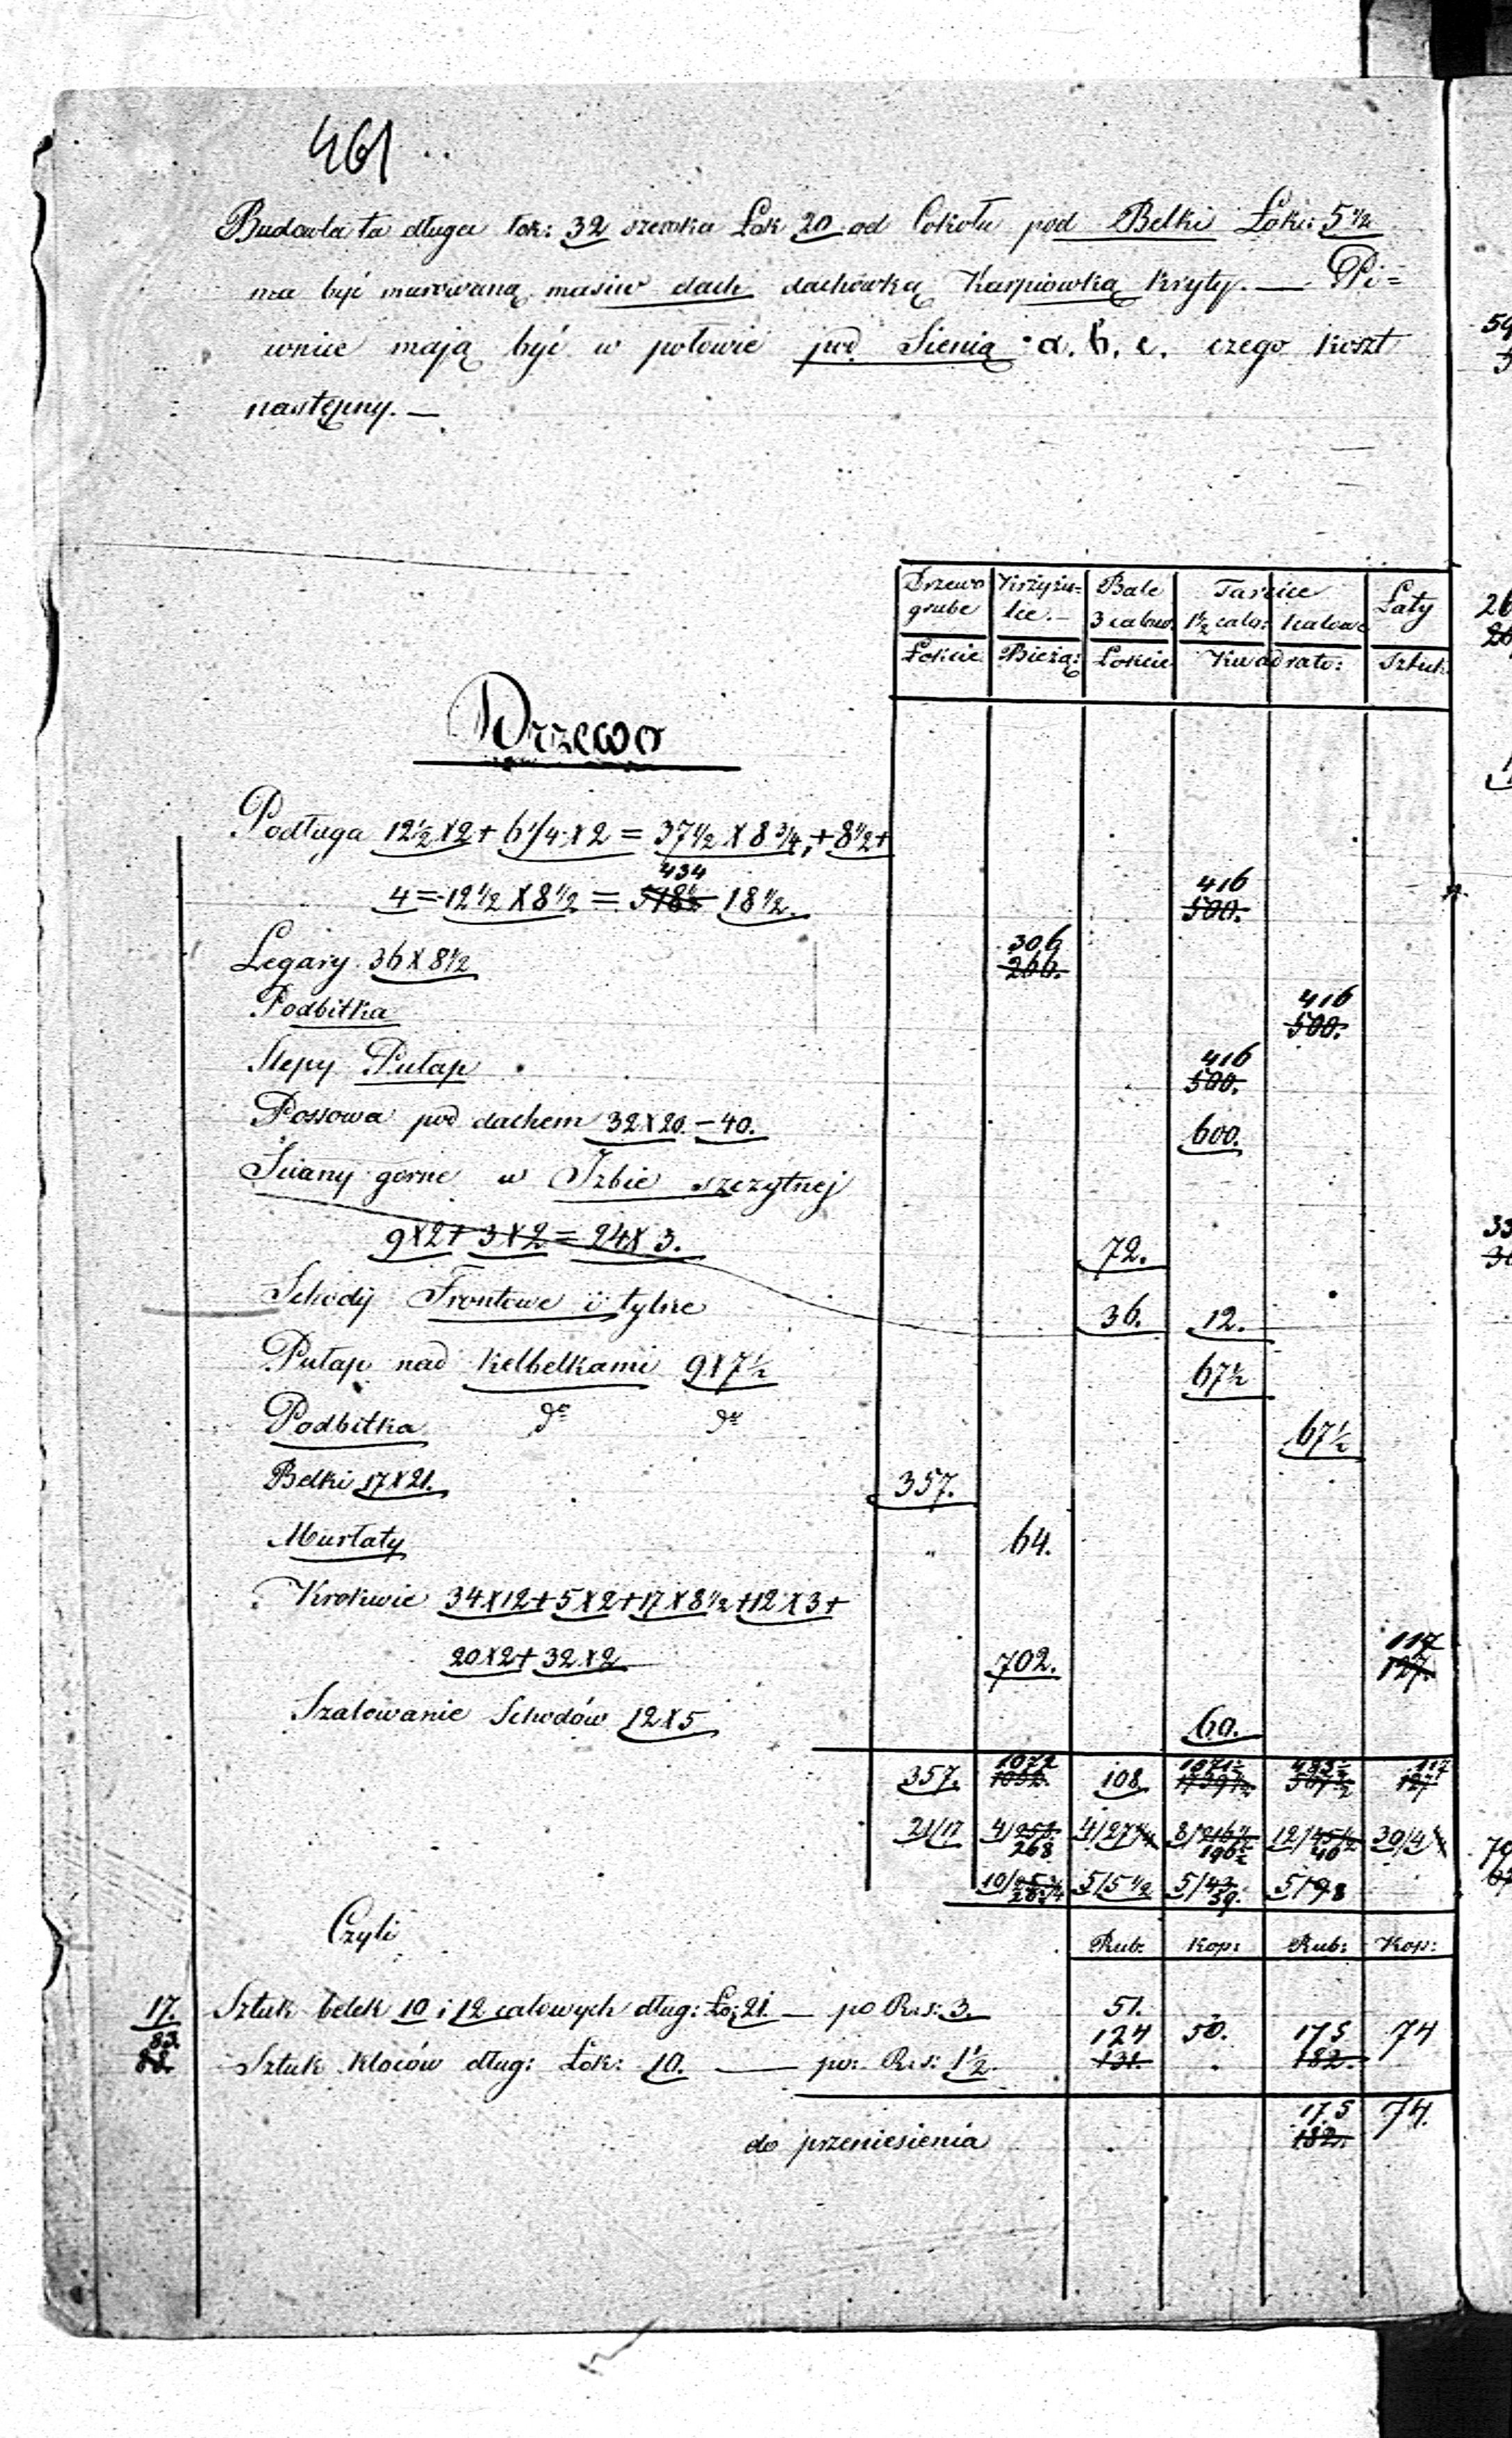 461
Budowla ta długa łok: 32 szeroka Łok 20 od Cokołu pod Belki Łoki: 5 1/2
ma być murowaną masiw dach dachówką Karpiówką kryty. — Pi=
wnice mają być w połowie pod Sienią a. b. c. czego koszt
następny. —
Drzewo grube Krzyżu= lce.— Bale 3 calow. Tarcice 1 1/2 calo: kalowe Łaty
Łokcie Bieżą: Łokcie Kwadrato: Sztuk
Drzewo
Podługa 12 1/2 x 2 + 6 1/4 x 2 = 37 1/2 x 8 3/4, + 8 1/2 +
434
4 = 12 1/2 x 8 1/2 = 518 1/2 18 1/2. 416 500.
Legary 36 x 8 1/2 306 266.
Podbitka 416 500.
Slepy Pułap 416 500.
Possowa pod dachem 32 x 20. — 40. 600.
Ściany górne w Izbie szczytnej
9 x 2 + 3 x 2 = 24 x 3. 72.
Schody Frontowe i tylne 36. 12.
Pułap nad Kelbelkami 9 x 7 1/2 67 1/2
Podbitka do do 67 1/2
Belki 17 x 21. 357.
Murłaty „ 64.
Krokwie 34 x 12 + 5 x 2 + 17 x 8 1/2 + 12 x 3 +
20 x 2 + 32 x 2 702. 117 127.
Szalowanie Schodów 12 x 5 60.
357. 1072 108. 117 127
21/17 4/ 268 4/27 8/ 12/ 46 30/4
10/ 5/5 1/2 5/ 39. 5/98
Czyli Rub. Kop: Rub: Kop:
17. Sztuk belek 10 i 12 calowych dług: Ło: 21. — po R.s: 3. 51.
83. 88. Sztuk kloców dług: Łok: 10. — po: R.s: 1 1/2. 124 131. 50. 175 182. 74
do przeniesienia 175 182. 74.